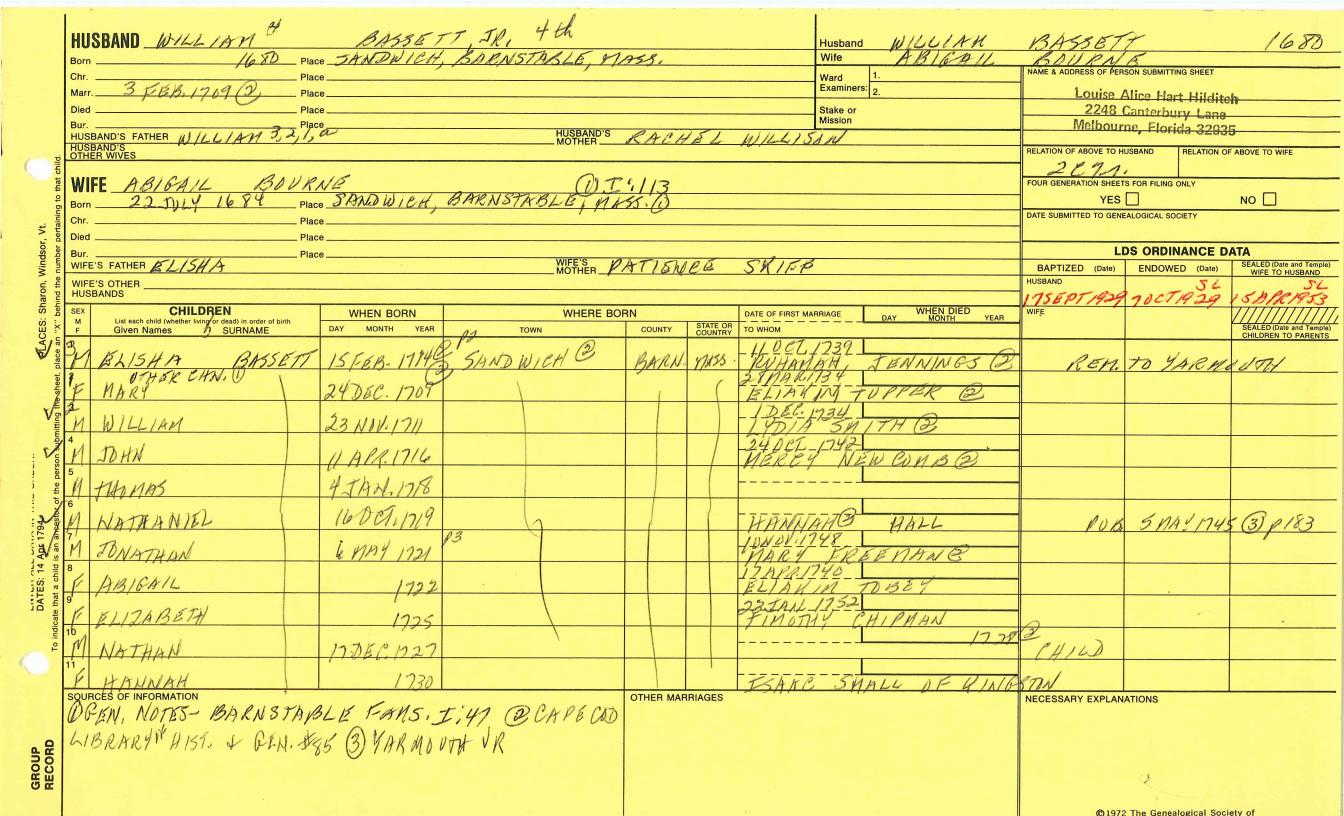 HUSBAND WILLIAM 4 BASSETT, JR, 4th
Born 1680 Place SANDWICH, BARNSTABLE, MASS.
Chr. Place
Marr. 3 FEB. 1709 ② Place
Died Place
Bur. Place
HUSBAND'S FATHER WILLIAM 3,2,1,a HUSBAND'S MOTHER RACHEL WILLISON
HUSBAND'S OTHER WIVES
WIFE ABIGAIL BOURNE ① I:113
Born 22 JULY 1684 Place SANDWICH, BARNSTABLE, MASS. ①
Chr. Place
Died Place
Bur. Place
WIFE'S FATHER ELISHA WIFE'S MOTHER PATIENCE SKIFF
WIFE'S OTHER HUSBANDS
Husband WILLIAM BASSETT 1680
Wife ABIGAIL BOURNE
Ward Examiners: 1.
2.
Stake or Mission
NAME & ADDRESS OF PERSON SUBMITTING SHEET
Louise Alice Hart Hilditch
2248 Canterbury Lane
Melbourne, Florida 32935
RELATION OF ABOVE TO HUSBAND RELATION OF ABOVE TO WIFE
FOUR GENERATION SHEETS FOR FILING ONLY
YES NO
DATE SUBMITTED TO GENEALOGICAL SOCIETY
LDS ORDINANCE DATA
BAPTIZED (Date) ENDOWED (Date) SEALED (Date and Temple) WIFE TO HUSBAND
HUSBAND SL SL
17 SEPT 1929 7 OCT 1929 15 APR 1953
WIFE
SEALED (Date and Temple) CHILDREN TO PARENTS
SEX M F CHILDREN WHEN BORN WHERE BORN DATE OF FIRST MARRIAGE WHEN DIED
List each child (whether living or dead) in order of birth
Given Names SURNAME DAY MONTH YEAR TOWN COUNTY STATE OR COUNTRY TO WHOM DAY MONTH YEAR
11 OCT. 1739
3 M ELISHA BASSETT 15 FEB. 1714 ② ③ SANDWICH ② BARN. MASS. JENNINGS ② REM. TO YARMOUTH
OTHER CHN. ①
1 F MARY 24 DEC. 1709 ELIAKIM TUPPER ②
1 DEC. 1734
2 M WILLIAM 23 NOV. 1711 LYDIA SMITH ②
24 OCT. 1742
4 M JOHN 11 APR. 1716 MERCY NEWCOMB ②
5 M THOMAS 4 JAN. 1718
6 M NATHANIEL 16 OCT. 1719 HANNAH ③ HALL PUB 5 MAY 1745 ③ p183
10 NOV. 1748
7 M JONATHAN 6 MAY 1721 p3 MARY FREEMAN ②
17 APR 1740
8 F ABIGAIL 1722 ELIAKIM TOBEY
23 JAN. 1752
9 F ELIZABETH 1725 TIMOTHY CHIPMAN
10 M NATHAN 17 DEC. 1727 1728 ② CHILD
11 F HANNAH 1730 ISAAC SMALL OF KINGSTON
SOURCES OF INFORMATION
① GEN. NOTES- BARNSTABLE FAMS. I:47 ② CAPE COD
LIBRARY HIST. & GEN. #85 ③ YARMOUTH VR
OTHER MARRIAGES
NECESSARY EXPLANATIONS
©1972 The Genealogical Society of
PLACES: Sharon, Windsor, Vt.
DATES: 14 Apr 1794
To indicate that a child is an ancestor of the person submitting the sheet, place an "X" behind the number pertaining to that child.
GROUP RECORD